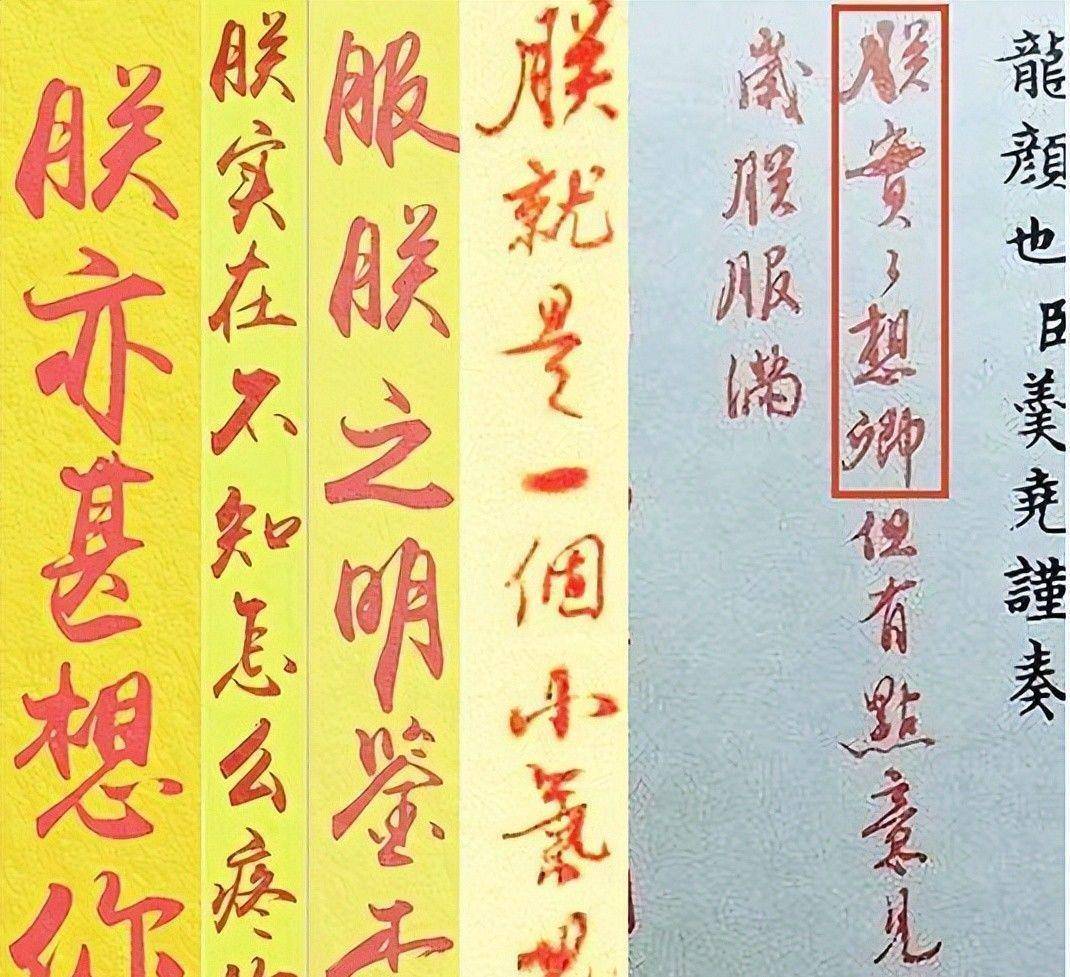 龍顏也臣羹堯謹奏
朕實々想卿但有點意見
歲朕服滿
朕就是一個小氣
服朕之明鉴
朕实在不知怎么疼
朕亦甚想你